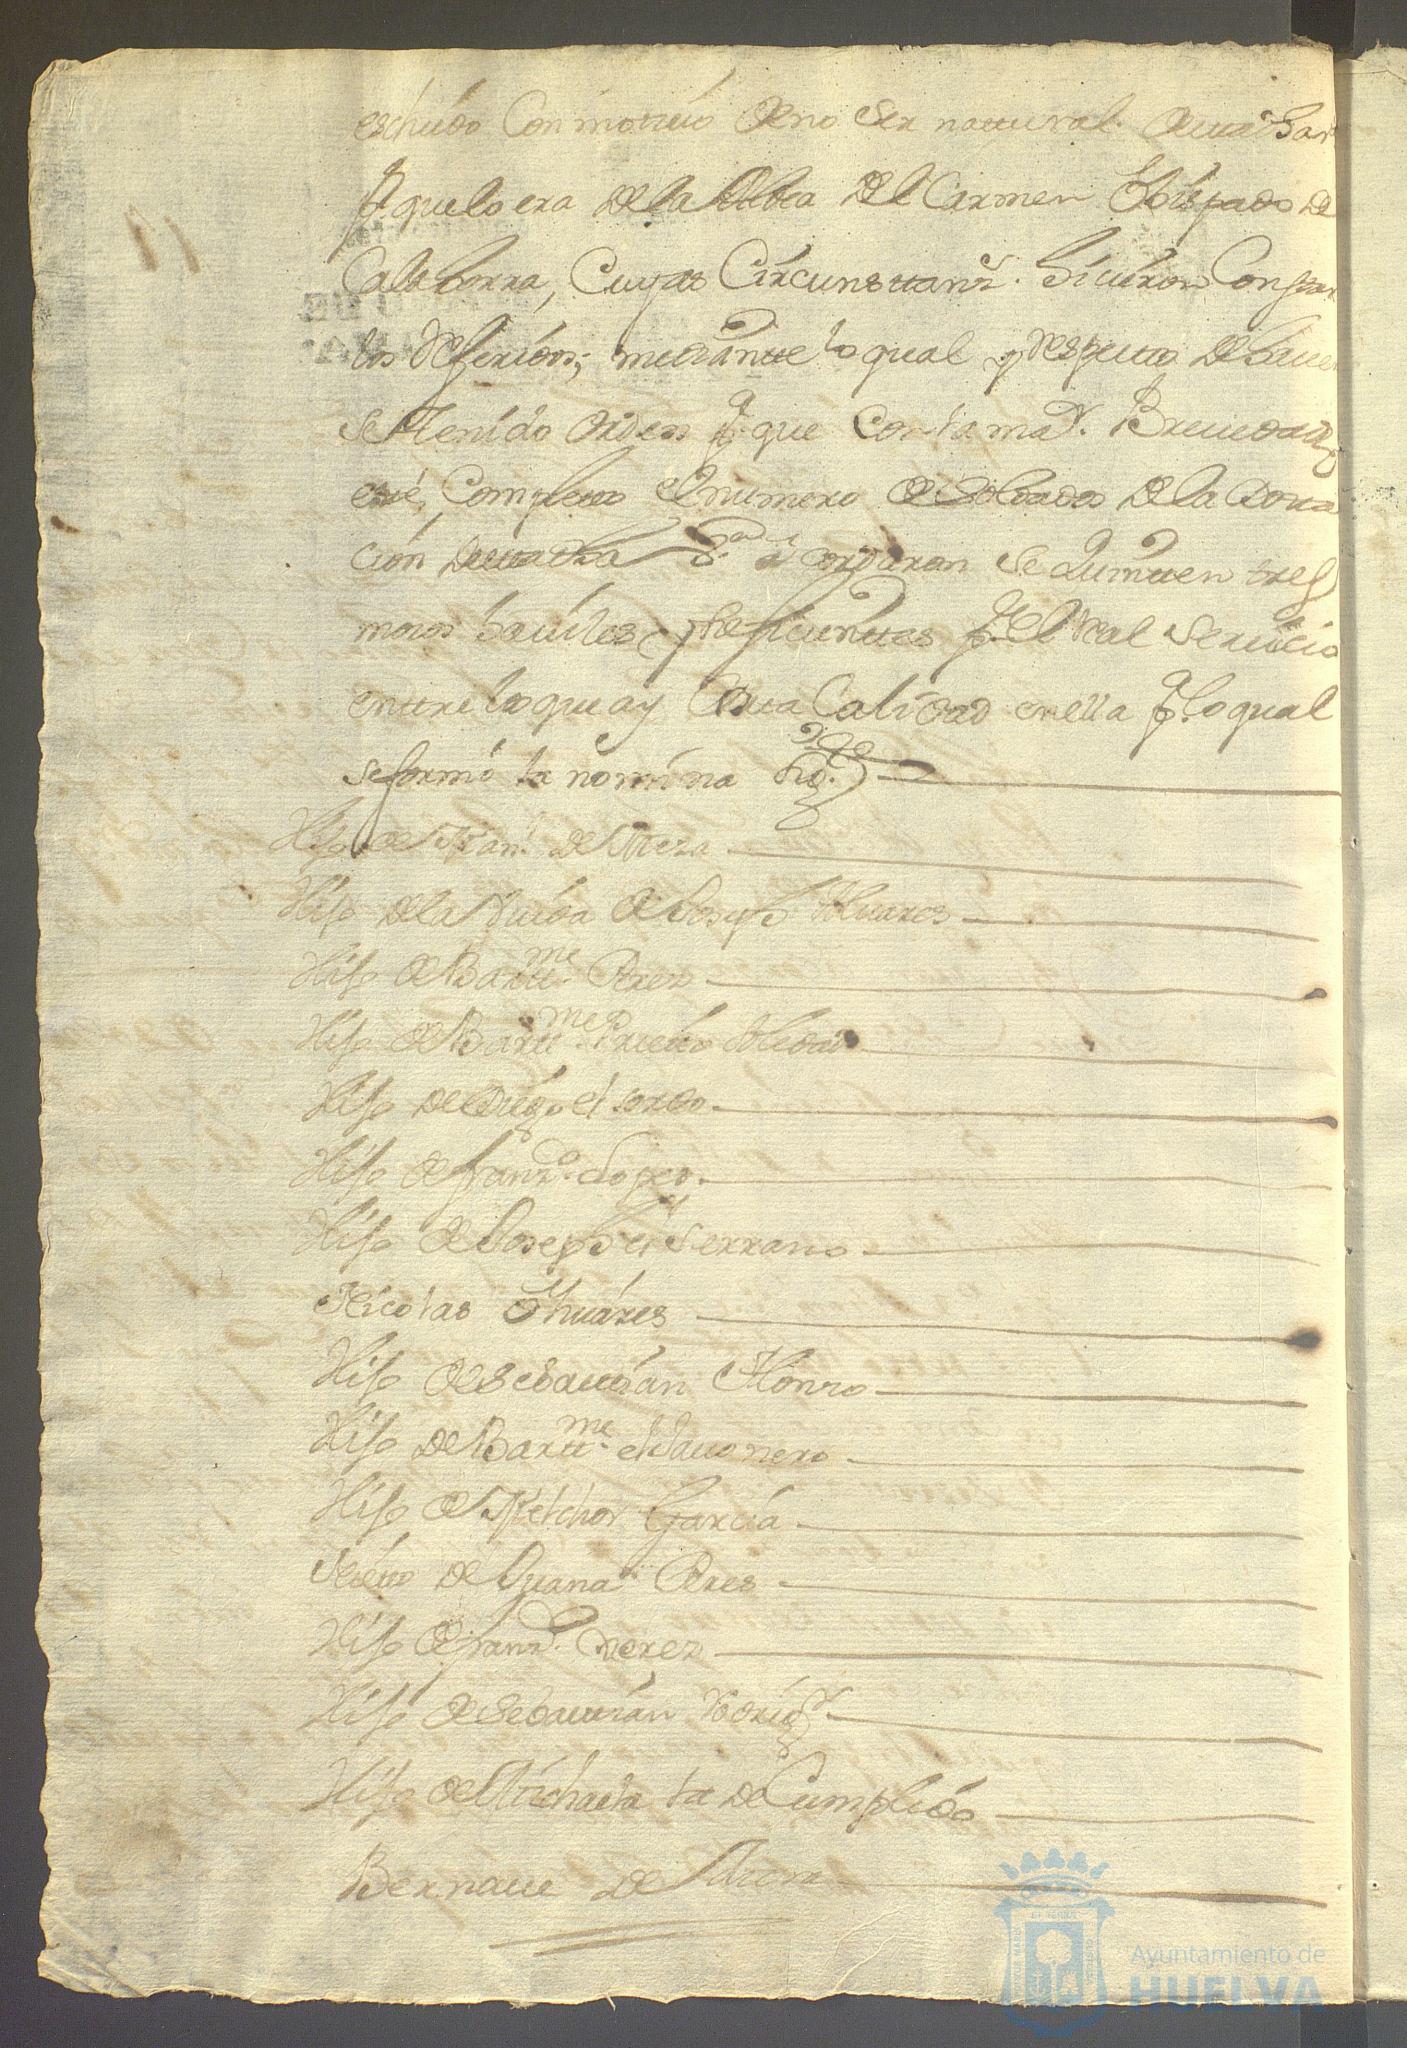 escluido Con mottivo de no ser nattural
pr quelo era de la Aldea del Carmen Obispado de
Calahorra, Cuyas Circunsttans. hicieron Constar
los Referidos; mediantte lo qual y respecto de haver
se tenido orden pa. que con la mar. Brevedad
estté Completto el numero de soldados de la dotta
cion acordaran se Quintten tres
mozos haviles y suficienttes pa. el Real servicio
enttre lo que ay estta Calidad en ella pa. lo qual
se formó la nomina sigte.
Hijo de Fran. de Meza
Hijo de la Viuda de Joseph Alvares
Hijo de Bartt.me Peres
Hijo de Bartt.me Prietto
Hijo de Diego el sordo
Hijo de franzco. Lopes
Hijo de Joseph el Serrano
Nicolas Alvares
Hijo de Sebasttian Alonzo
Hijo de Bartt.me el Javonero
Hijo de Melchor Garcia
Nietto de Juana Peres
Hijo de franzco. Perez
Hijo de Sebasttian Rodrigz.
Hijo de Michaela la de Cumplido
Bernave de
Ayuntamiento de
HUELVA